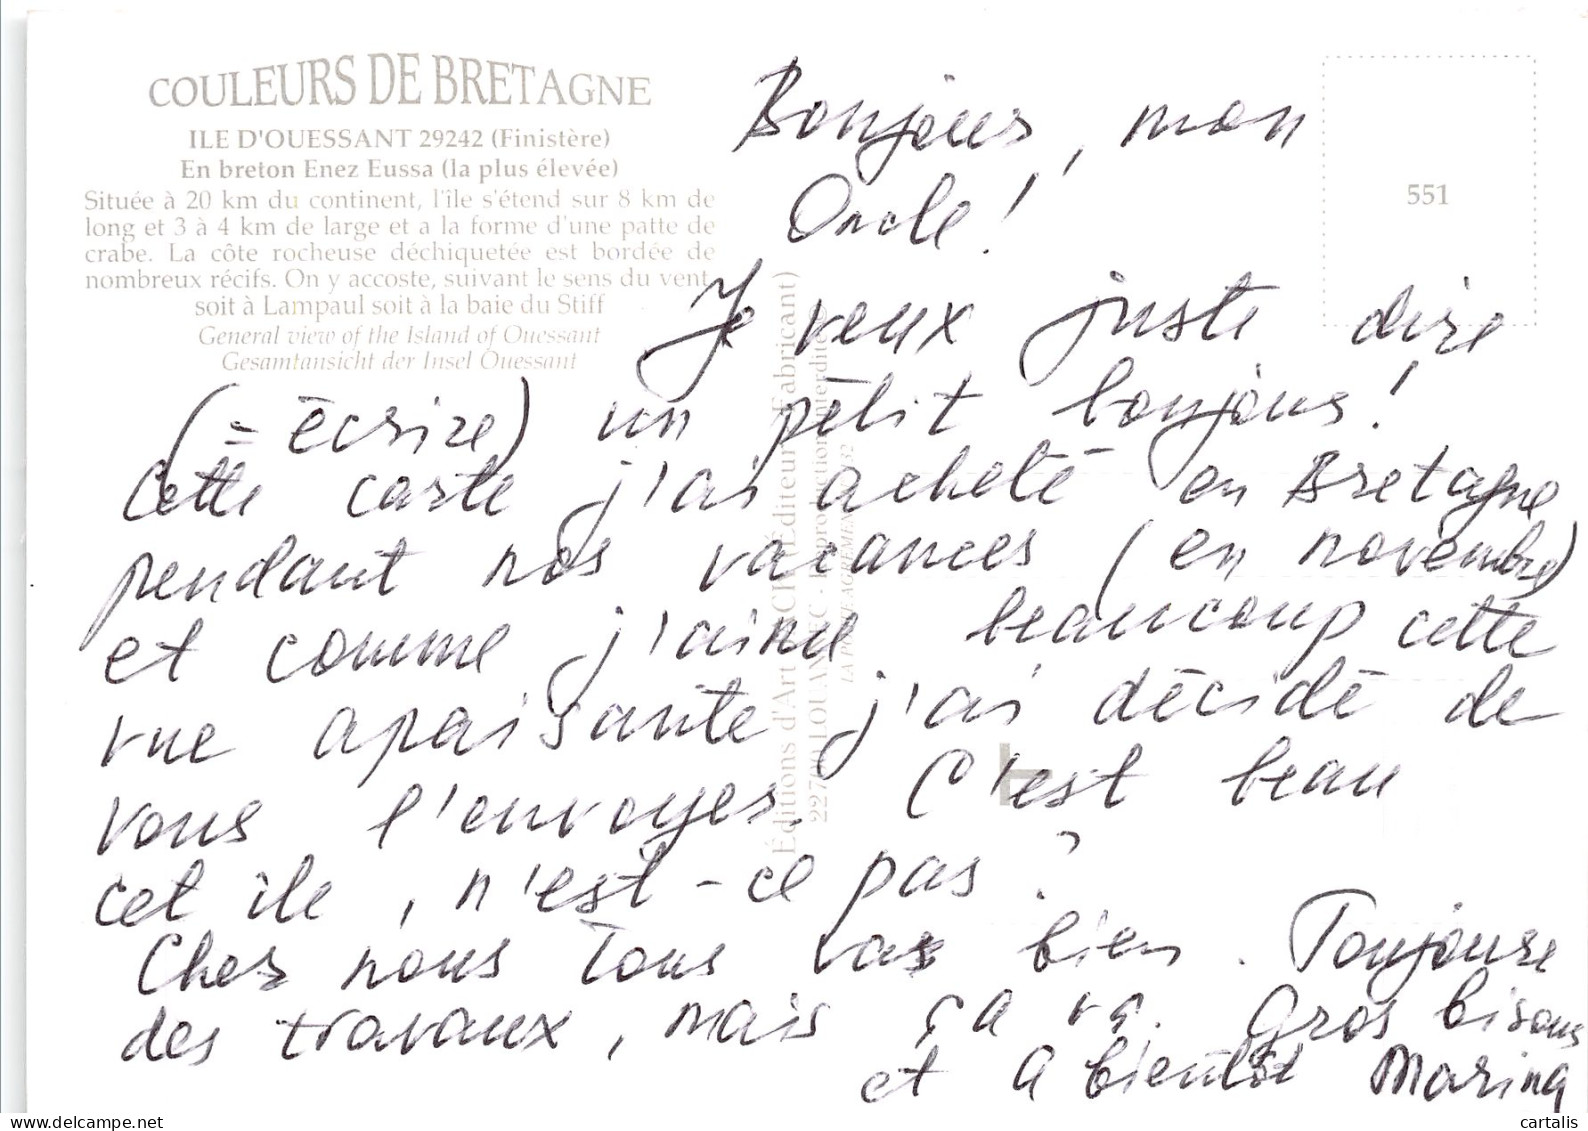 COULEURS DE BRETAGNE
ILE D'OUESSANT 29242 (Finistère)
En breton Enez Eussa (la plus élevée)
Située à 20 km du continent, l'île s'étend sur 8 km de
long et 3 à 4 km de large et a la forme d'une patte de
crabe. La côte rocheuse déchiquetée est bordée de
nombreux récifs. On y accoste, suivant le sens du vent
soit à Lampaul soit à la baie du Stiff
General view of the Island of Ouessant
Gesamtansicht der Insel Ouessant
551
Éditions d'Art JACK (Éditeur Fabricant)
LOUANNEC - Reproduction interdite
Bonjour, mon
Oncle!
Je veux juste dire
(= écrire) un pétit bonjour!
Cette carte j'ai acheté en Bretagne
pendant nos vacances (en novembre)
et comme j'aime beaucoup cette
vue apaisante j'ai décidé de
vous l'envoyer. C'est beau
cet ile, n'est-ce pas?
Chez nous tous va bien. Toujours
des travaux, mais ça va. Gros bisous
et a bientôt Marina
cartalis
www.delcampe.net